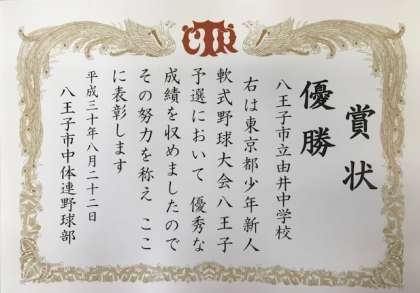 CTR
賞状
優勝
八王子市立由井中学校
右は東京都少年新人
軟式野球大会八王子
予選において 優秀な
成績を収めましたので
その努力を称え ここ
に表彰します
平成三十年八月二十二日
八王子市中体連野球部